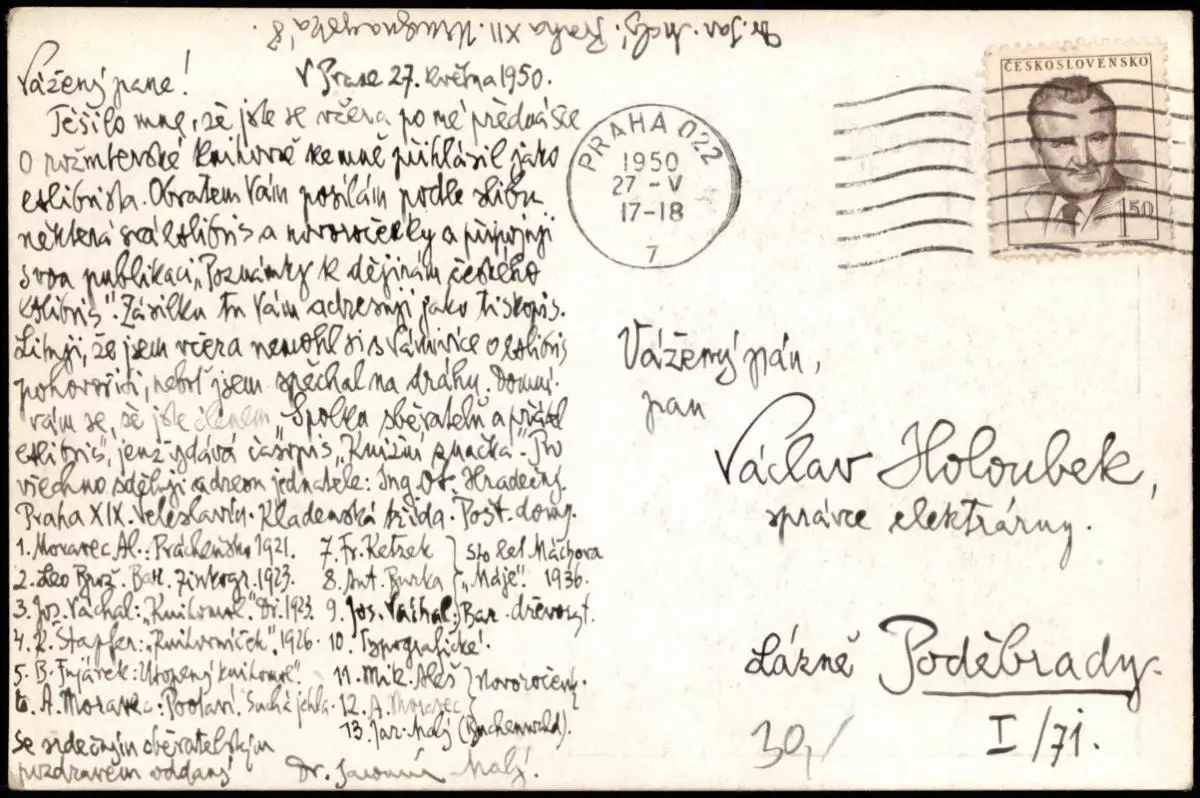 Dr. Jar. Malý. Praha XII.
Vážený pane!
V Praze 27. května 1950.
Těšilo mne, že jste se včera po mé přednášce
o rožmberské knihovně ke mně přihlásil jako
exlibrista. Obratem Vám posílám podle slibu
některá svá exlibris a novoročenky a připojuji
svou publikaci „Poznámky k dějinám českého
exlibris". Zásilku tu Vám adresuji jako tiskopis.
Lituji, že jsem včera nemohl si s Vámi více o exlibris
pohovořiti, neboť jsem spěchal na dráhu. Domní-
vám se, že jste členem „Spolku sběratelů a přátel
exlibris", jenž vydává časopis „Knižní značka". Pro
všechno sděluji adresu jednatele: Ing. Ot. Hradečný.
Praha XIX. Veleslavín. Kladenská třída. Post. domy.
1. Moravec Al.: Práchensko 1921.
2. Leo Brož. Bar. zinkogr. 1923.
3. Jos. Váchal: „Knihomol". Dř. 1923.
4. K. Štapfer: „Knihovníček", 1926.
5. B. Fujárek: Utopený knihomol".
6. A. Moravec: Pootaví. Suchá jehla.
7. Fr. Ketzek
8. Ant. Burka
sto let Máchova
„Máje". 1936.
9. Jos. Váchal: Bar. dřevoryt.
10. Typografické.
11. Mik. Aleš
12. A. Moravec
Novoročenky.
13. Jar. Malý (Buchenwald).
Se srdečným sběratelským
pozdravem oddaný
Dr. Jaromír Malý.
PRAHA 022
1950
27 - V
17-18
7
ČESKOSLOVENSKO
1 50
Vážený pán,
pan
Václav Holoubek,
správce elektrárny.
Lázně Poděbrady.
I/71.
30,/